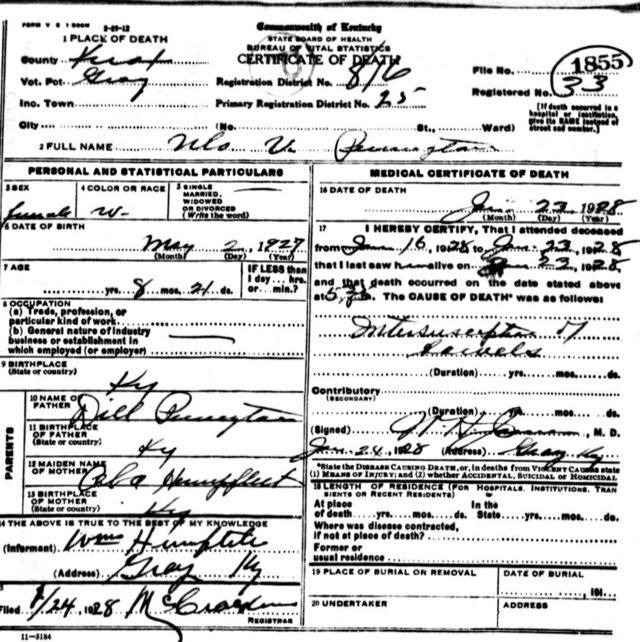 FORM V S 1 500M 2-29-12
Commonwealth of Kentucky
STATE BOARD OF HEALTH
BUREAU OF VITAL STATISTICS
CERTIFICATE OF DEATH
1 PLACE OF DEATH
County Knox
Vot. Pct Gray
Inc. Town
City (No. St., Ward)
Registration District No. 816
Primary Registration District No. 25
File No. 1855
Registered No. 33
[If death occurred in a
hospital or institution,
give its NAME instead of
street and number.]
2 FULL NAME V. Pennington
PERSONAL AND STATISTICAL PARTICULARS
3 SEX
female
4 COLOR OR RACE
W
5 SINGLE
MARRIED,
WIDOWED
OR DIVORCED
(Write the word)
6 DATE OF BIRTH
May 2, 1927
(Month) (Day) (Year)
7 AGE
yrs. 8 mos. 21 ds.
IF LESS than
1 day ... hrs.
or ... min.?
8 OCCUPATION
(a) Trade, profession, or
particular kind of work
(b) General nature of industry
business or establishment in
which employed (or employer)
9 BIRTHPLACE
(State or country)
Ky
PARENTS
10 NAME OF
FATHER
Dill Pennington
11 BIRTHPLACE
OF FATHER
(State or country)
Ky
12 MAIDEN NAME
OF MOTHER
Humpfleet
13 BIRTHPLACE
OF MOTHER
(State or country)
Ky
14 THE ABOVE IS TRUE TO THE BEST OF MY KNOWLEDGE
(Informant) Wm
(Address) Gray Ky
Filed 1/24 1928
REGISTRAR
11-3184
MEDICAL CERTIFICATE OF DEATH
16 DATE OF DEATH
Jan 23 1928
(Month) (Day) (Year)
17 I HEREBY CERTIFY, That I attended deceased
from Jan 16, 1928 to Jan 23, 1928
that I last saw h alive on 23, 1928
and that death occurred on the date stated above
at The CAUSE OF DEATH* was as follows:
of
Bowels
(Duration) yrs. mos. ds.
Contributory
(SECONDARY)
(Duration) yrs. mos. ds.
(Signed) M. D.
Jan 24, 1928 (Address) Gray Ky
*State the DISEASE CAUSING DEATH, or, in deaths from VIOLENT CAUSES state
(1) MEANS OF INJURY; and (2) whether ACCIDENTAL, SUICIDAL OR HOMICIDAL
18 LENGTH OF RESIDENCE (FOR HOSPITALS, INSTITUTIONS, TRAN
SIENTS OR RECENT RESIDENTS)
At place
of death yrs. mos. ds.
In the
State yrs. mos. ds.
Where was disease contracted,
if not at place of death?
Former or
usual residence
19 PLACE OF BURIAL OR REMOVAL
DATE OF BURIAL
191
20 UNDERTAKER
ADDRESS